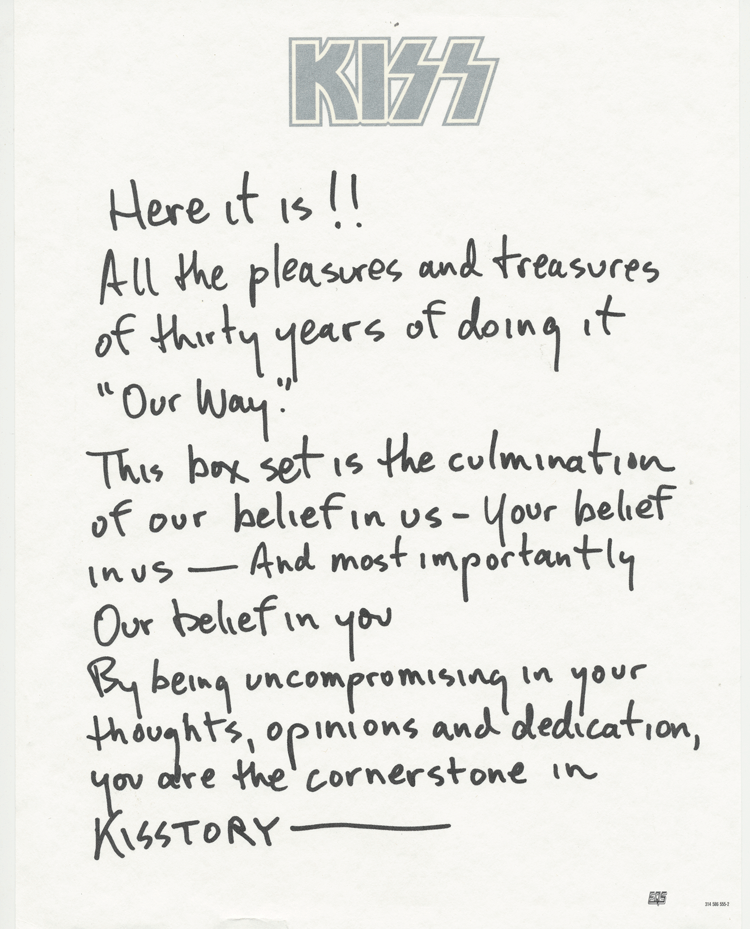 KISS
Here it is!!
All the pleasures and treasures
of thirty years of doing it
"Our Way."
This box set is the culmination
of our belief in us - Your belief
in us — And most importantly
Our belief in you
By being uncompromising in your
thoughts, opinions and dedication,
you are the cornerstone in
KISSTORY —
314 586 555-2